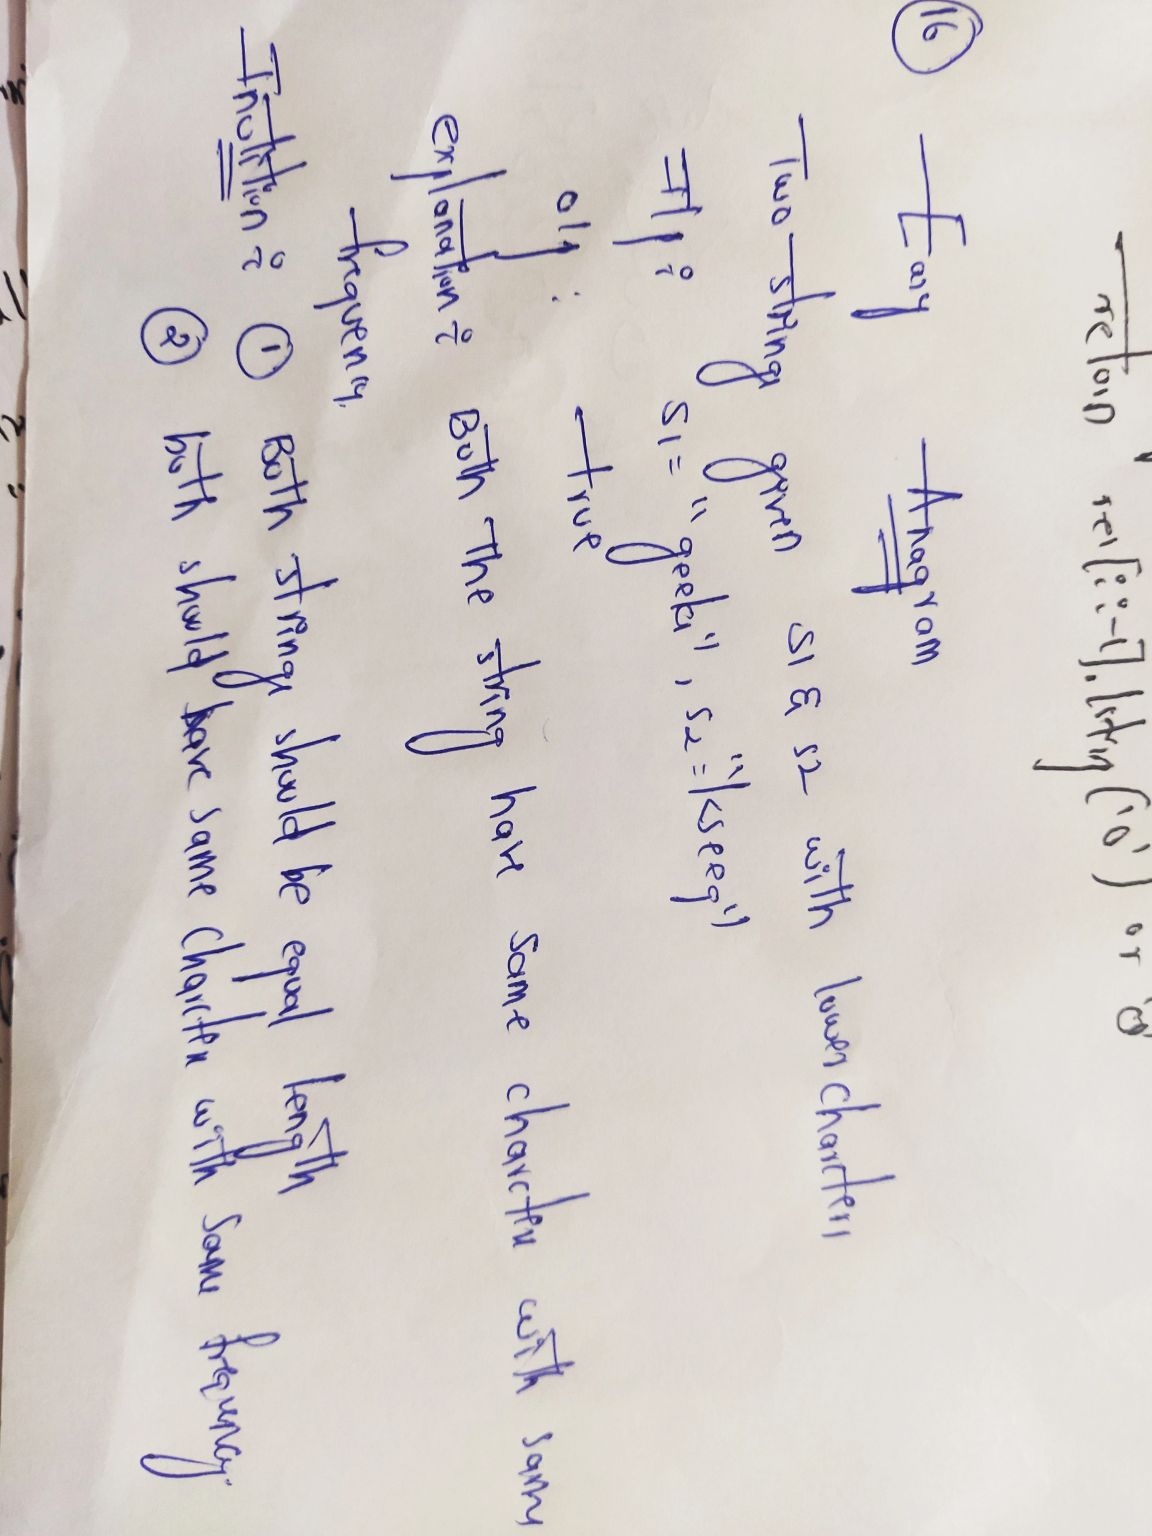 return rel[::-1].lstrip('0') or '0'
16 Easy Anagram
Two strings given S1 & S2 with lower charcters
I/p: S1 = "geeks", S2 = "kseeg"
o/p: true
explanation: Both the string have same charcter with same
frequency.
Intution: 1 Both strings should be equal length
2 both should have same charcter with same frequency.